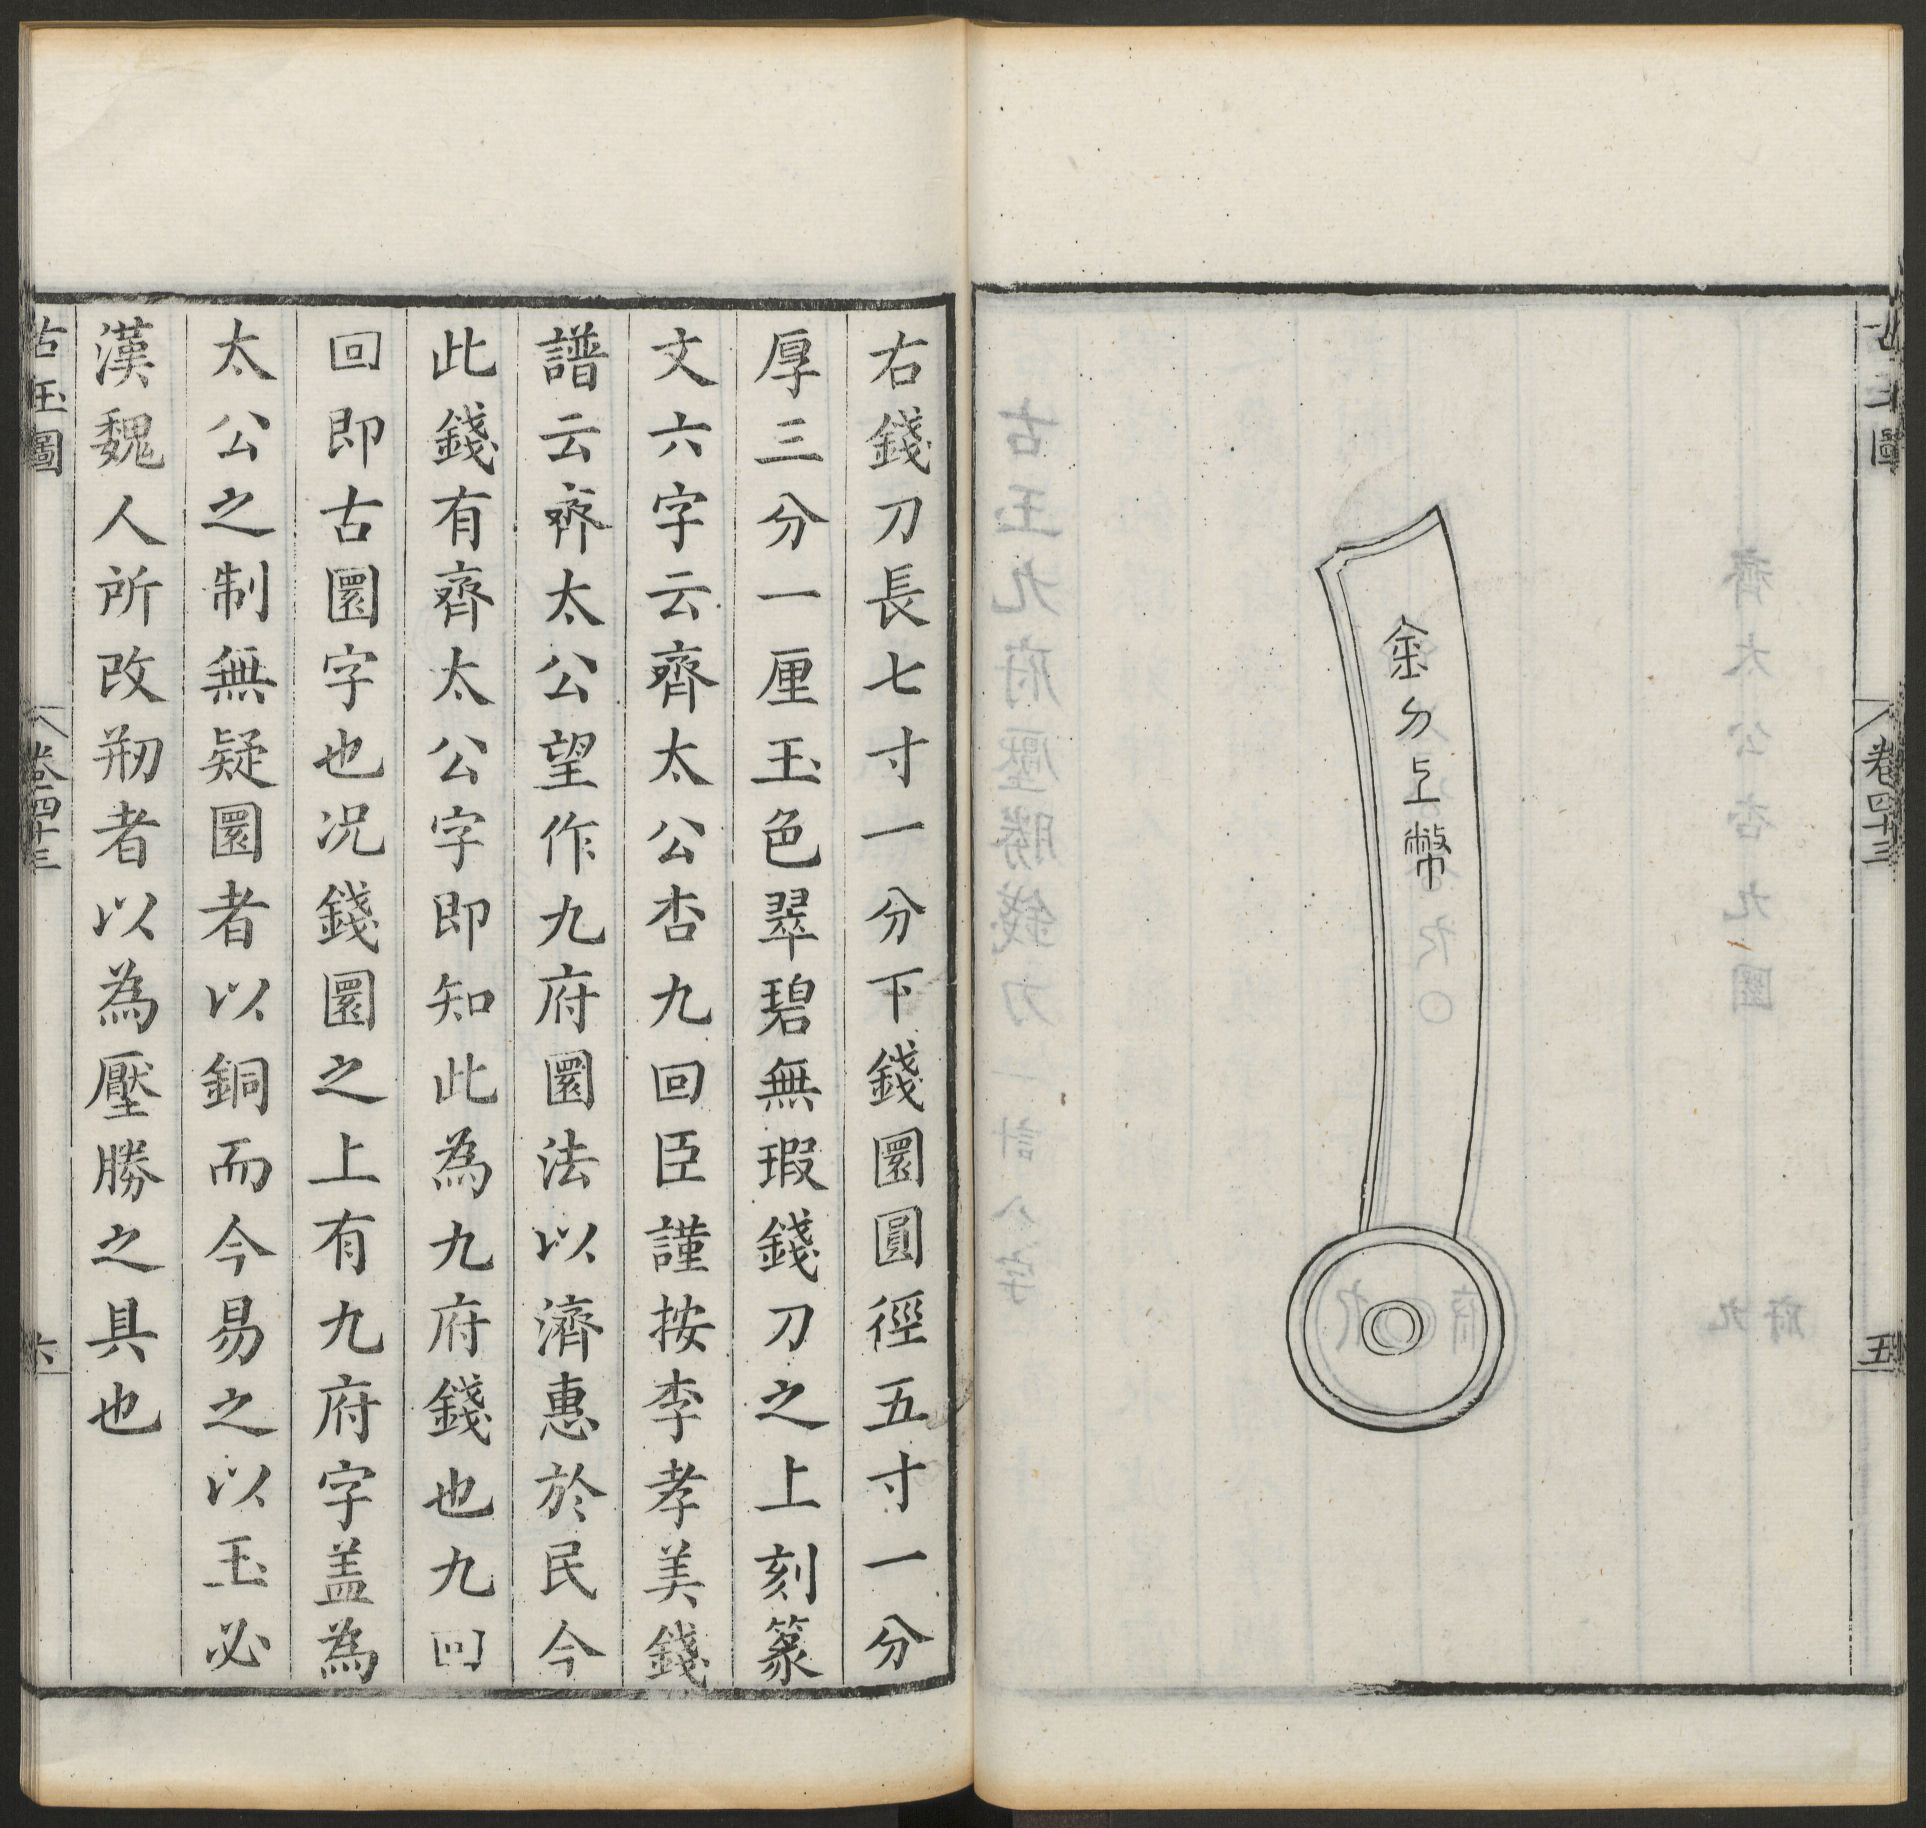 古玉圖
卷四十三
五
上幣
右錢刀長七寸一分下錢圜圓徑五寸一分
厚三分一厘玉色翠碧無瑕錢刀之上刻篆
文六字云齊太公杏九回臣謹按李孝美錢
譜云齊太公望作九府圜法以濟惠於民今
此錢有齊太公字即知此為九府錢也九回
回即古圜字也况錢圜之上有九府字盖為
太公之制無疑圜者以銅而今易之以玉必
漢魏人所改刱者以為壓勝之具也
古玉圖
卷四十三
六